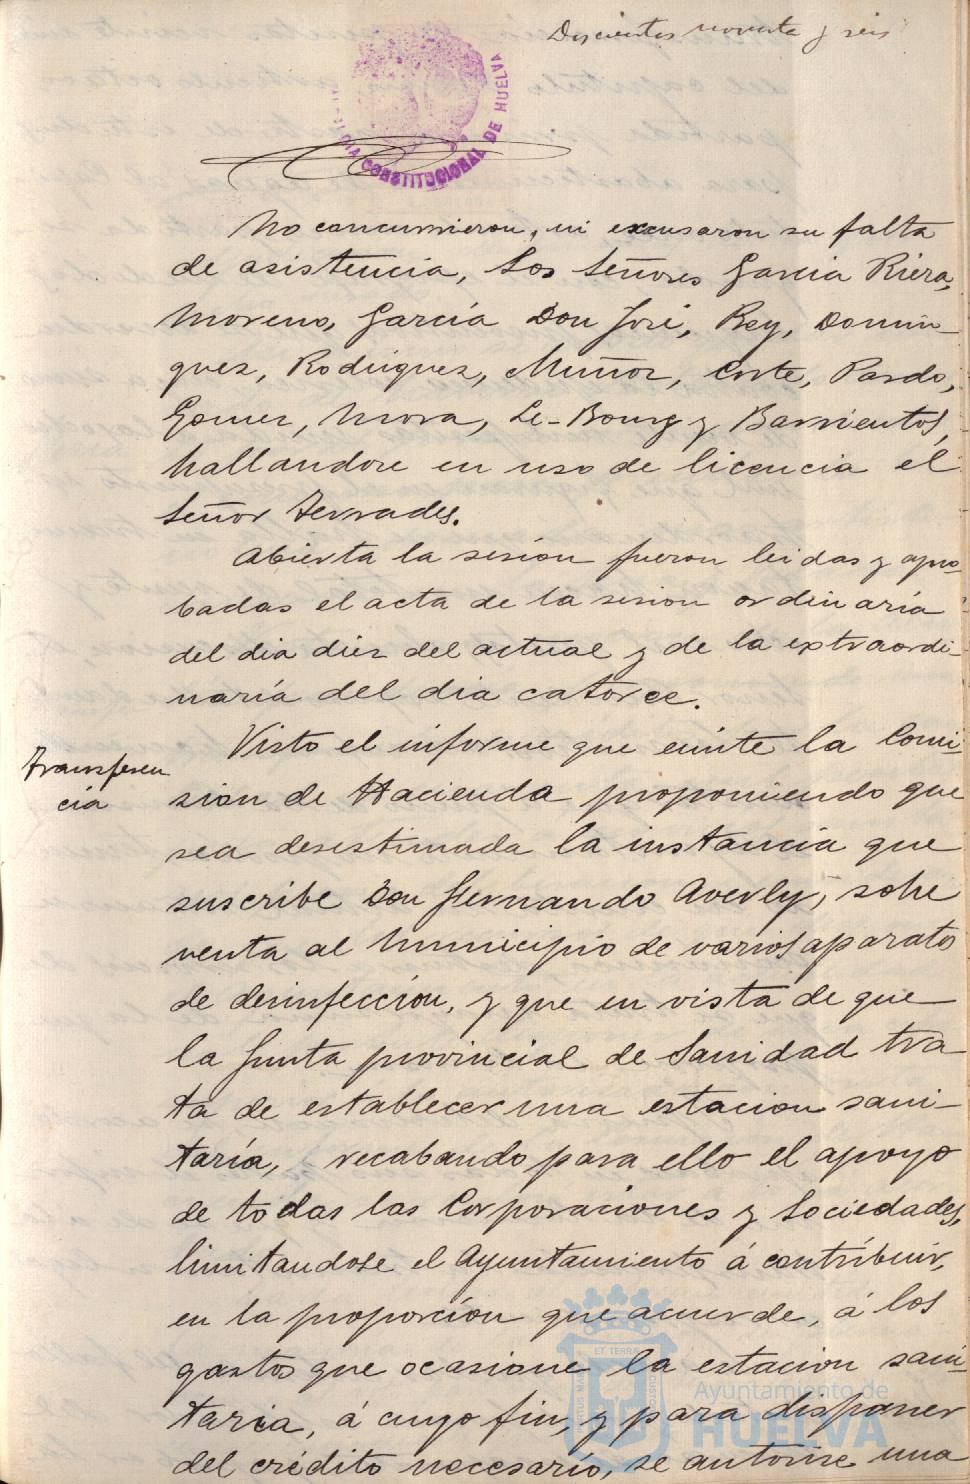 Doscientos noventa y seis
ALCALDIA CONSTITUCIONAL DE HUELVA
No concurrieron, ni excusaron su falta
de asistencia, Los Señores Garcia Riera,
Moreno, García Don José, Rey, Domin-
guez, Rodriguez, Muñoz, Corte, Pardo,
Gomez, Mora, Le-Bourg y Barrientos,
hallandose en uso de licencia el
Señor Terrades.
Abierta la sesión fueron leidas y apro-
badas el acta de la sesion ordinaria
del dia diez del actual y de la extraordi-
naría del dia catorce.
Transferen
cia
Visto el informe que emite la Comi-
sion de Hacienda proponiendo que
sea desestimada la instancia que
suscribe Don Fernando Averly, sobre
venta al Municipio de varios aparatos
de desinfección, y que en vista de que
la Junta provincial de Sanidad tra
ta de establecer una estacion sani-
taría, recabando para ello el apoyo
de todas las Corporaciones y Sociedades,
limitandose el Ayuntamiento á contribuir,
en la proporcíon que acuerde, á los
gastos que ocasione la estacion sani-
taria, á cuyo fin, y para disponer
del crédito necesario, se autorise una
Ayuntamiento de
HUELVA